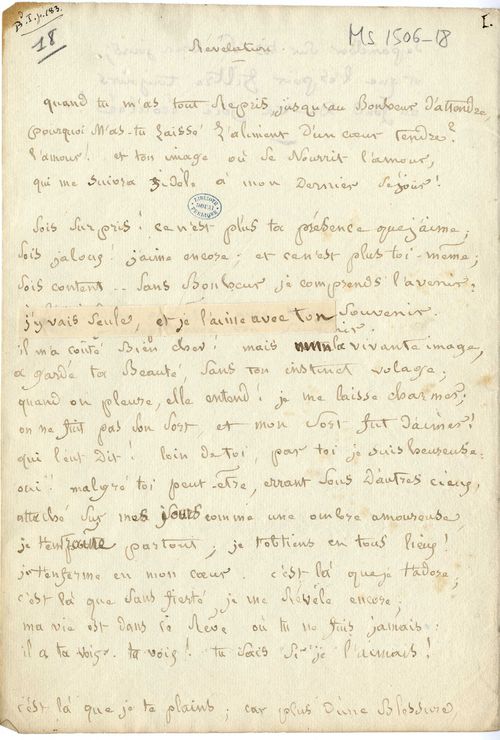 Bd I. p. 183.
I.
18
MS 1506-18
Révélation
quand tu m'as tout Repris jusqu'au Bonheur D'attendre,
pourquoi M'as-tu laissé l'aliment D'un cœur tendre ?
l'amour ! et ton image où se Nourrit l'amour,
qui me suivra idole à mon Dernier séjour !
Sois surpris ! ce n'est plus ta présence que j'aime ;
sois jaloux ! j'aime encore ; et ce n'est plus toi-même ;
sois content .. sans Bonheur je comprends l'avenir ;
j'y vais seule, et je l'aime avec ton souvenir.
il m'a coûté Bien cher ! mais la vivante image,
a gardé ta Beauté sans ton instinct volage ;
quand on pleure, elle entend ! je me laisse charmer ;
on ne fuit pas son sort, et mon sort fut d'aimer !
qui l'eut Dit ! loin de toi, par toi je suis heureuse :
oui ! malgré toi peut-être, errant sous D'autres cieux,
attaché sur mes jours comme une ombre amoureuse,
je t'en partout, je t'obtiens en tous lieux !
je t'enferme en mon cœur. c'est là que je t'adore ;
c'est là que sans fierté je me Révèle encore ;
ma vie est dans ce Rêve où tu ne fuis jamais :
il a ta voix. ta voix ! tu sais si je l'aimais !
c'est là que je te plains ; car plus d'une Blessure,